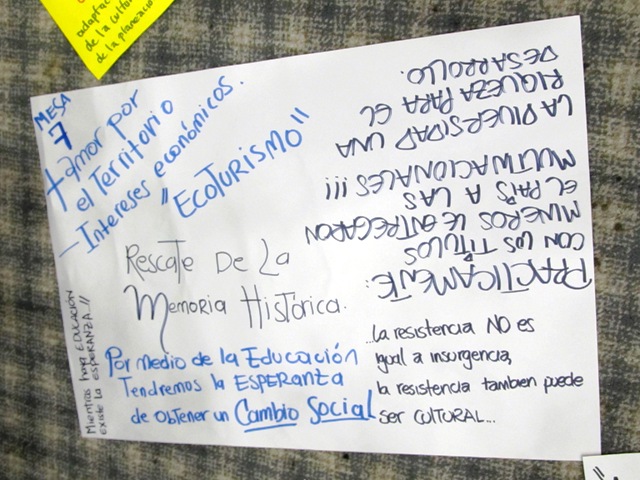 adaptac
de la cultur
de la planeació
MESA
7
+amor por
el Territorio
— Intereses económicos.
"ECOTURISMO"
PRACTICAMENTE:
CON LOS TÍTULOS
MINEROS LE ENTREGARON
EL PAÍS A LAS
MULTINACIONALES!!!
LA DIVERSIDAD UNA
RIQUEZA PARA EL
DESARROLLO.
RESCATE DE LA
Memoria Histórica.
Por medio de la Educación
Tendremos la ESPERANZA
de obtener un Cambio Social
...la resistencia NO es
igual a insurgencia,
la resistencia tambien puede
ser CULTURAL...
Mientras haya EDUCACIÓN
EXISTE LA ESPERANZA...!!